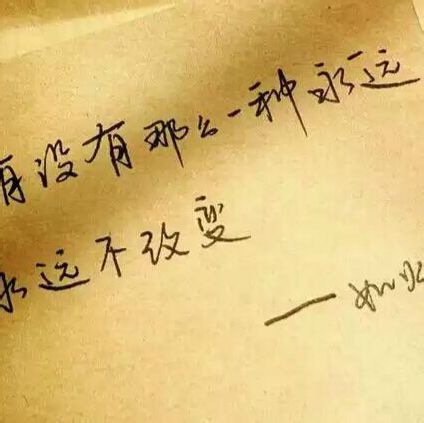 有没有那么一种永远
永远不改变
—如